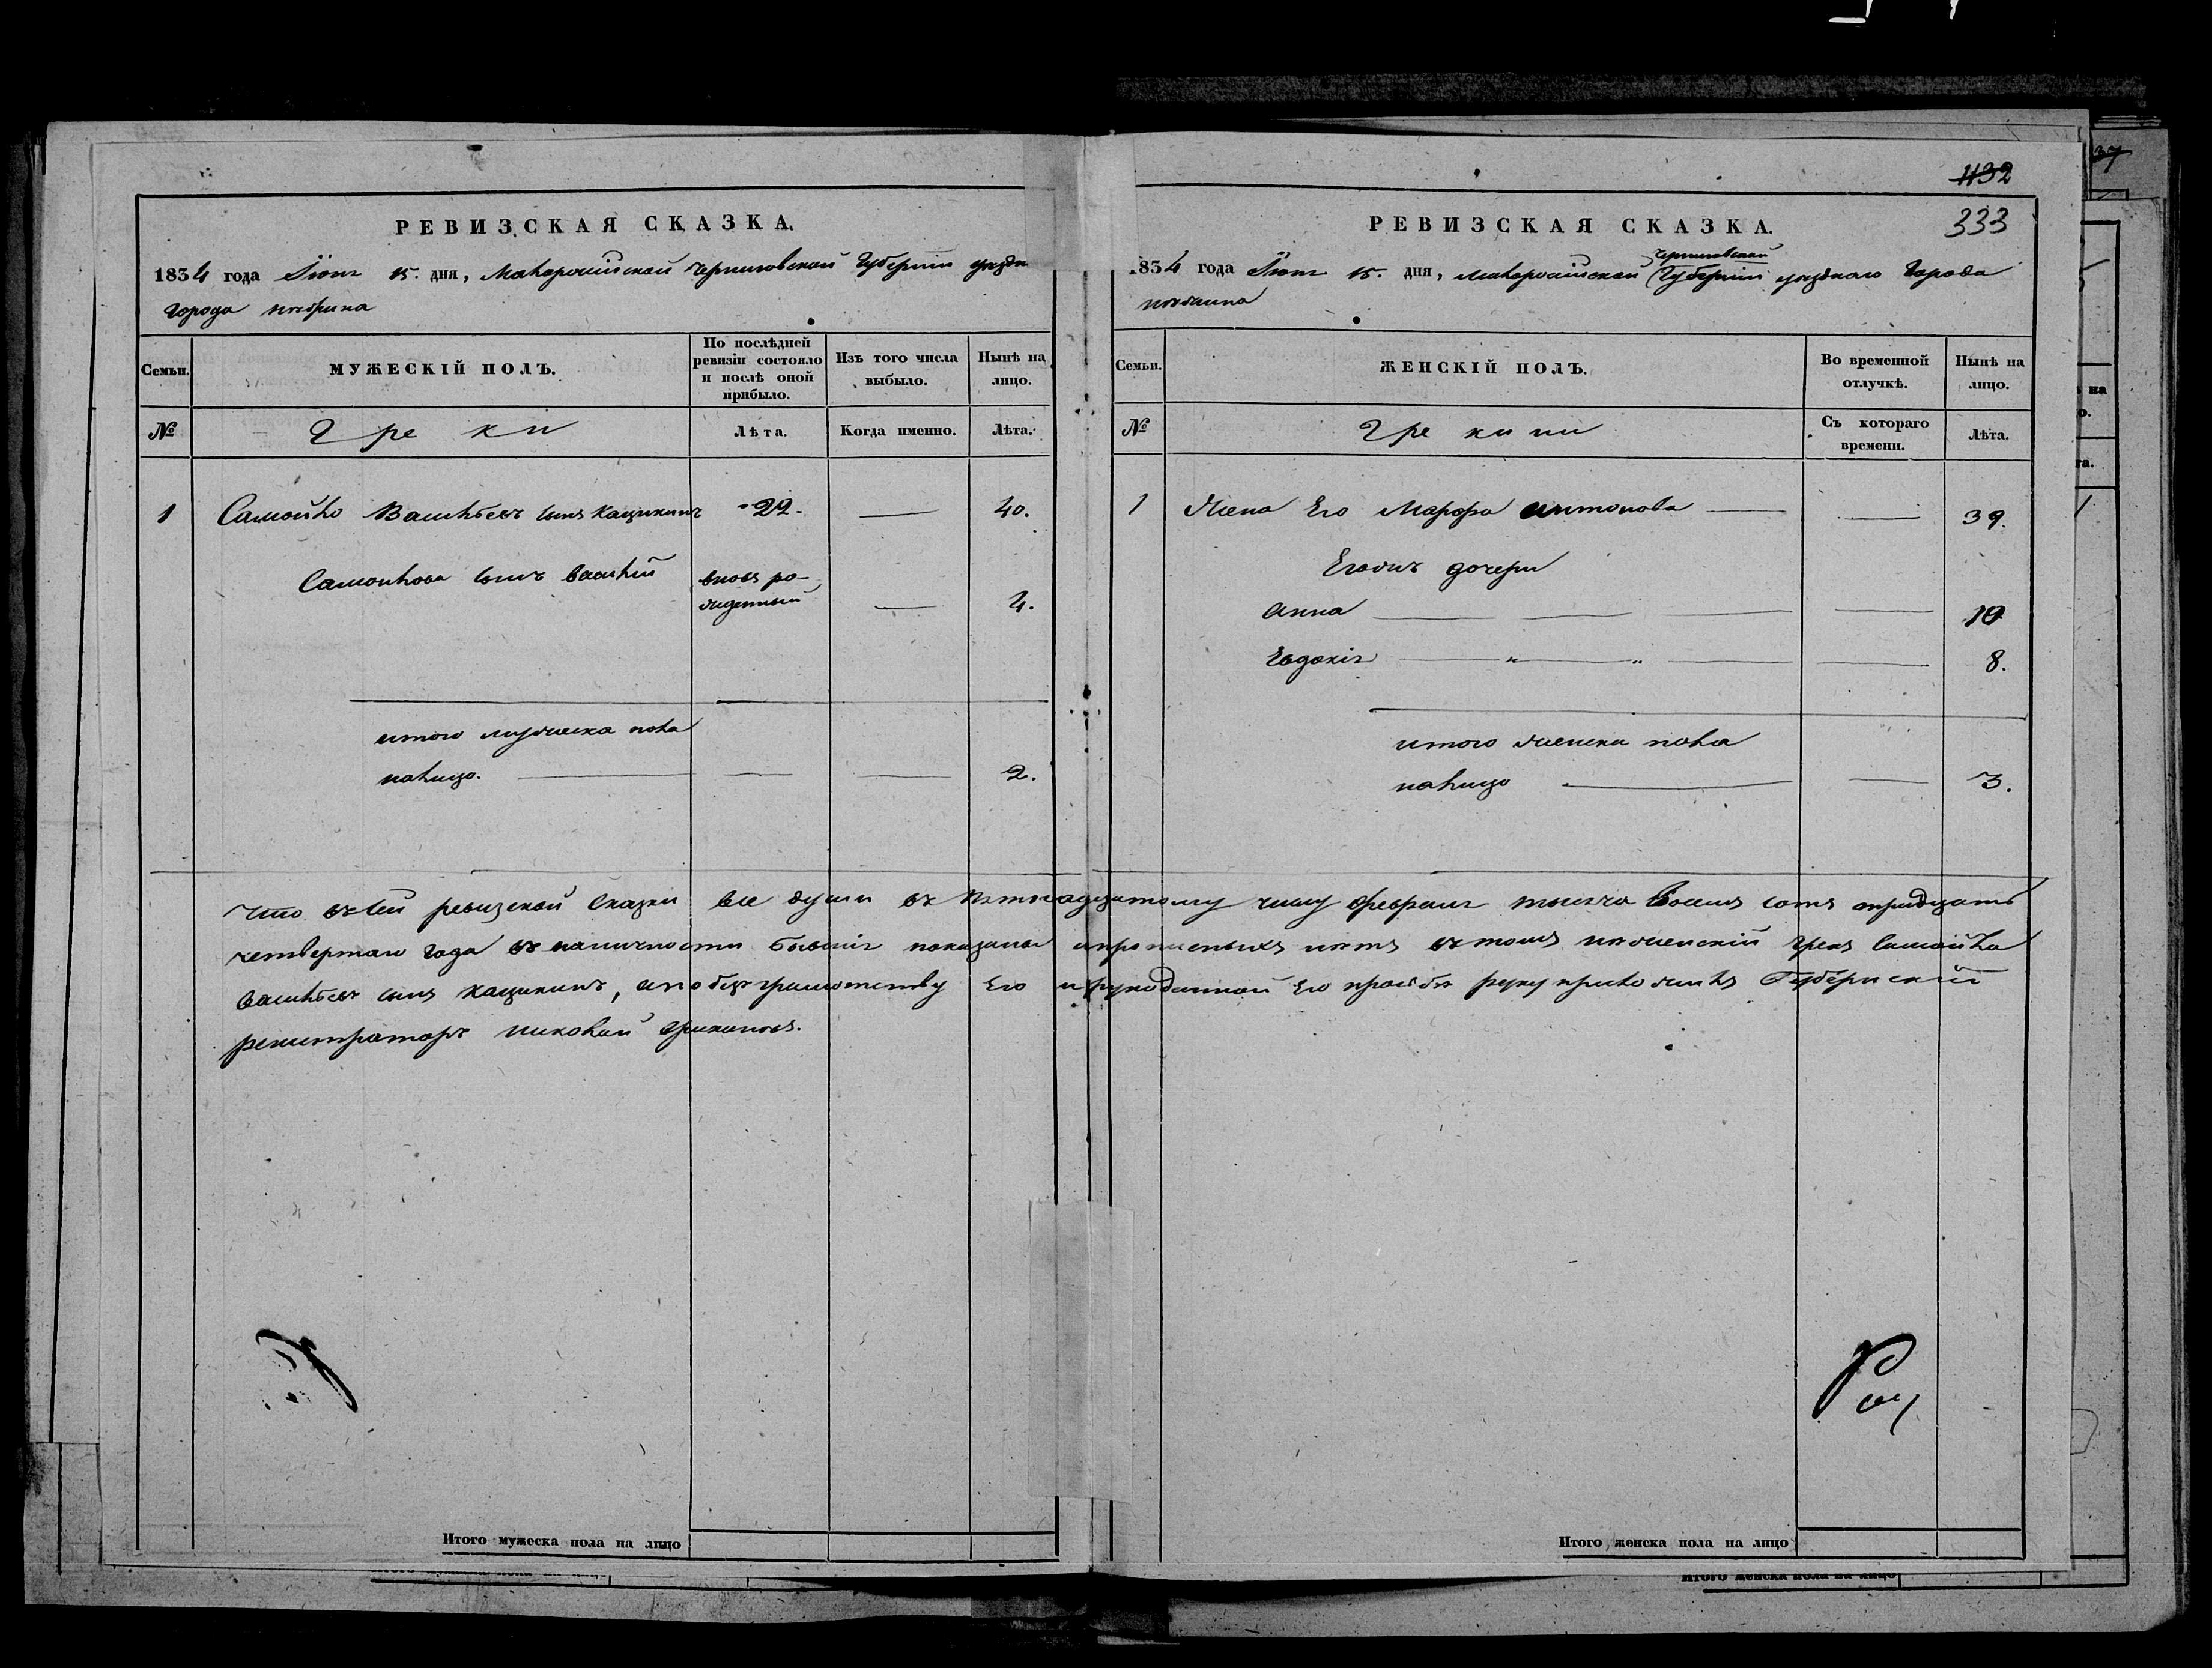 1132
333
РЕВИЗСКАЯ СКАЗКА.
1834 года Іюня 15. дня, Малоросійской Черниговской Губерніи уездн
Города
Семьи. МУЖЕСКІЙ ПОЛЪ. По послѣдней ревизіи состояло и послѣ оной прибыло. Изъ того числа выбыло. Нынѣ на лицо.
№ Греки Лѣта. Когда именно. Лѣта.
1 Самойло Васильевъ сынъ Кацикинъ 22 — 40.
Самойлова сынъ василій вновь ро-
жденный — 4.
итого мужеска пола
налицо. — — 2.
РЕВИЗСКАЯ СКАЗКА.
Черниговской
1834 года Іюня 15. дня, малоросійской Губерніи уезднаго Города
Семьи. ЖЕНСКІЙ ПОЛЪ. Во временной отлучкѣ. Нынѣ на лицо.
№ Грекини Съ котораго времени. Лѣта.
1 Жена Его Марфа антонова — — 39.
Его дочери
анна — — — — 10
Евдокія — " — " — — 8.
итого женска пола
налицо — — 3.
Что въ сей ревизской Сказки все души къ пятнадцатому числу февраля тысяча восемь сотъ тридцать
четвертаго Года въ наличности бывшія показаны и нѣтъ въ томъ грекъ самойла
васильевъ сынъ кацикинъ, а по безграмотству Его и Его прозьбѣ руку приложилъ Губернскій
регистраторъ николай
Итого мужеска пола на лицо
Итого женска пола на лицо